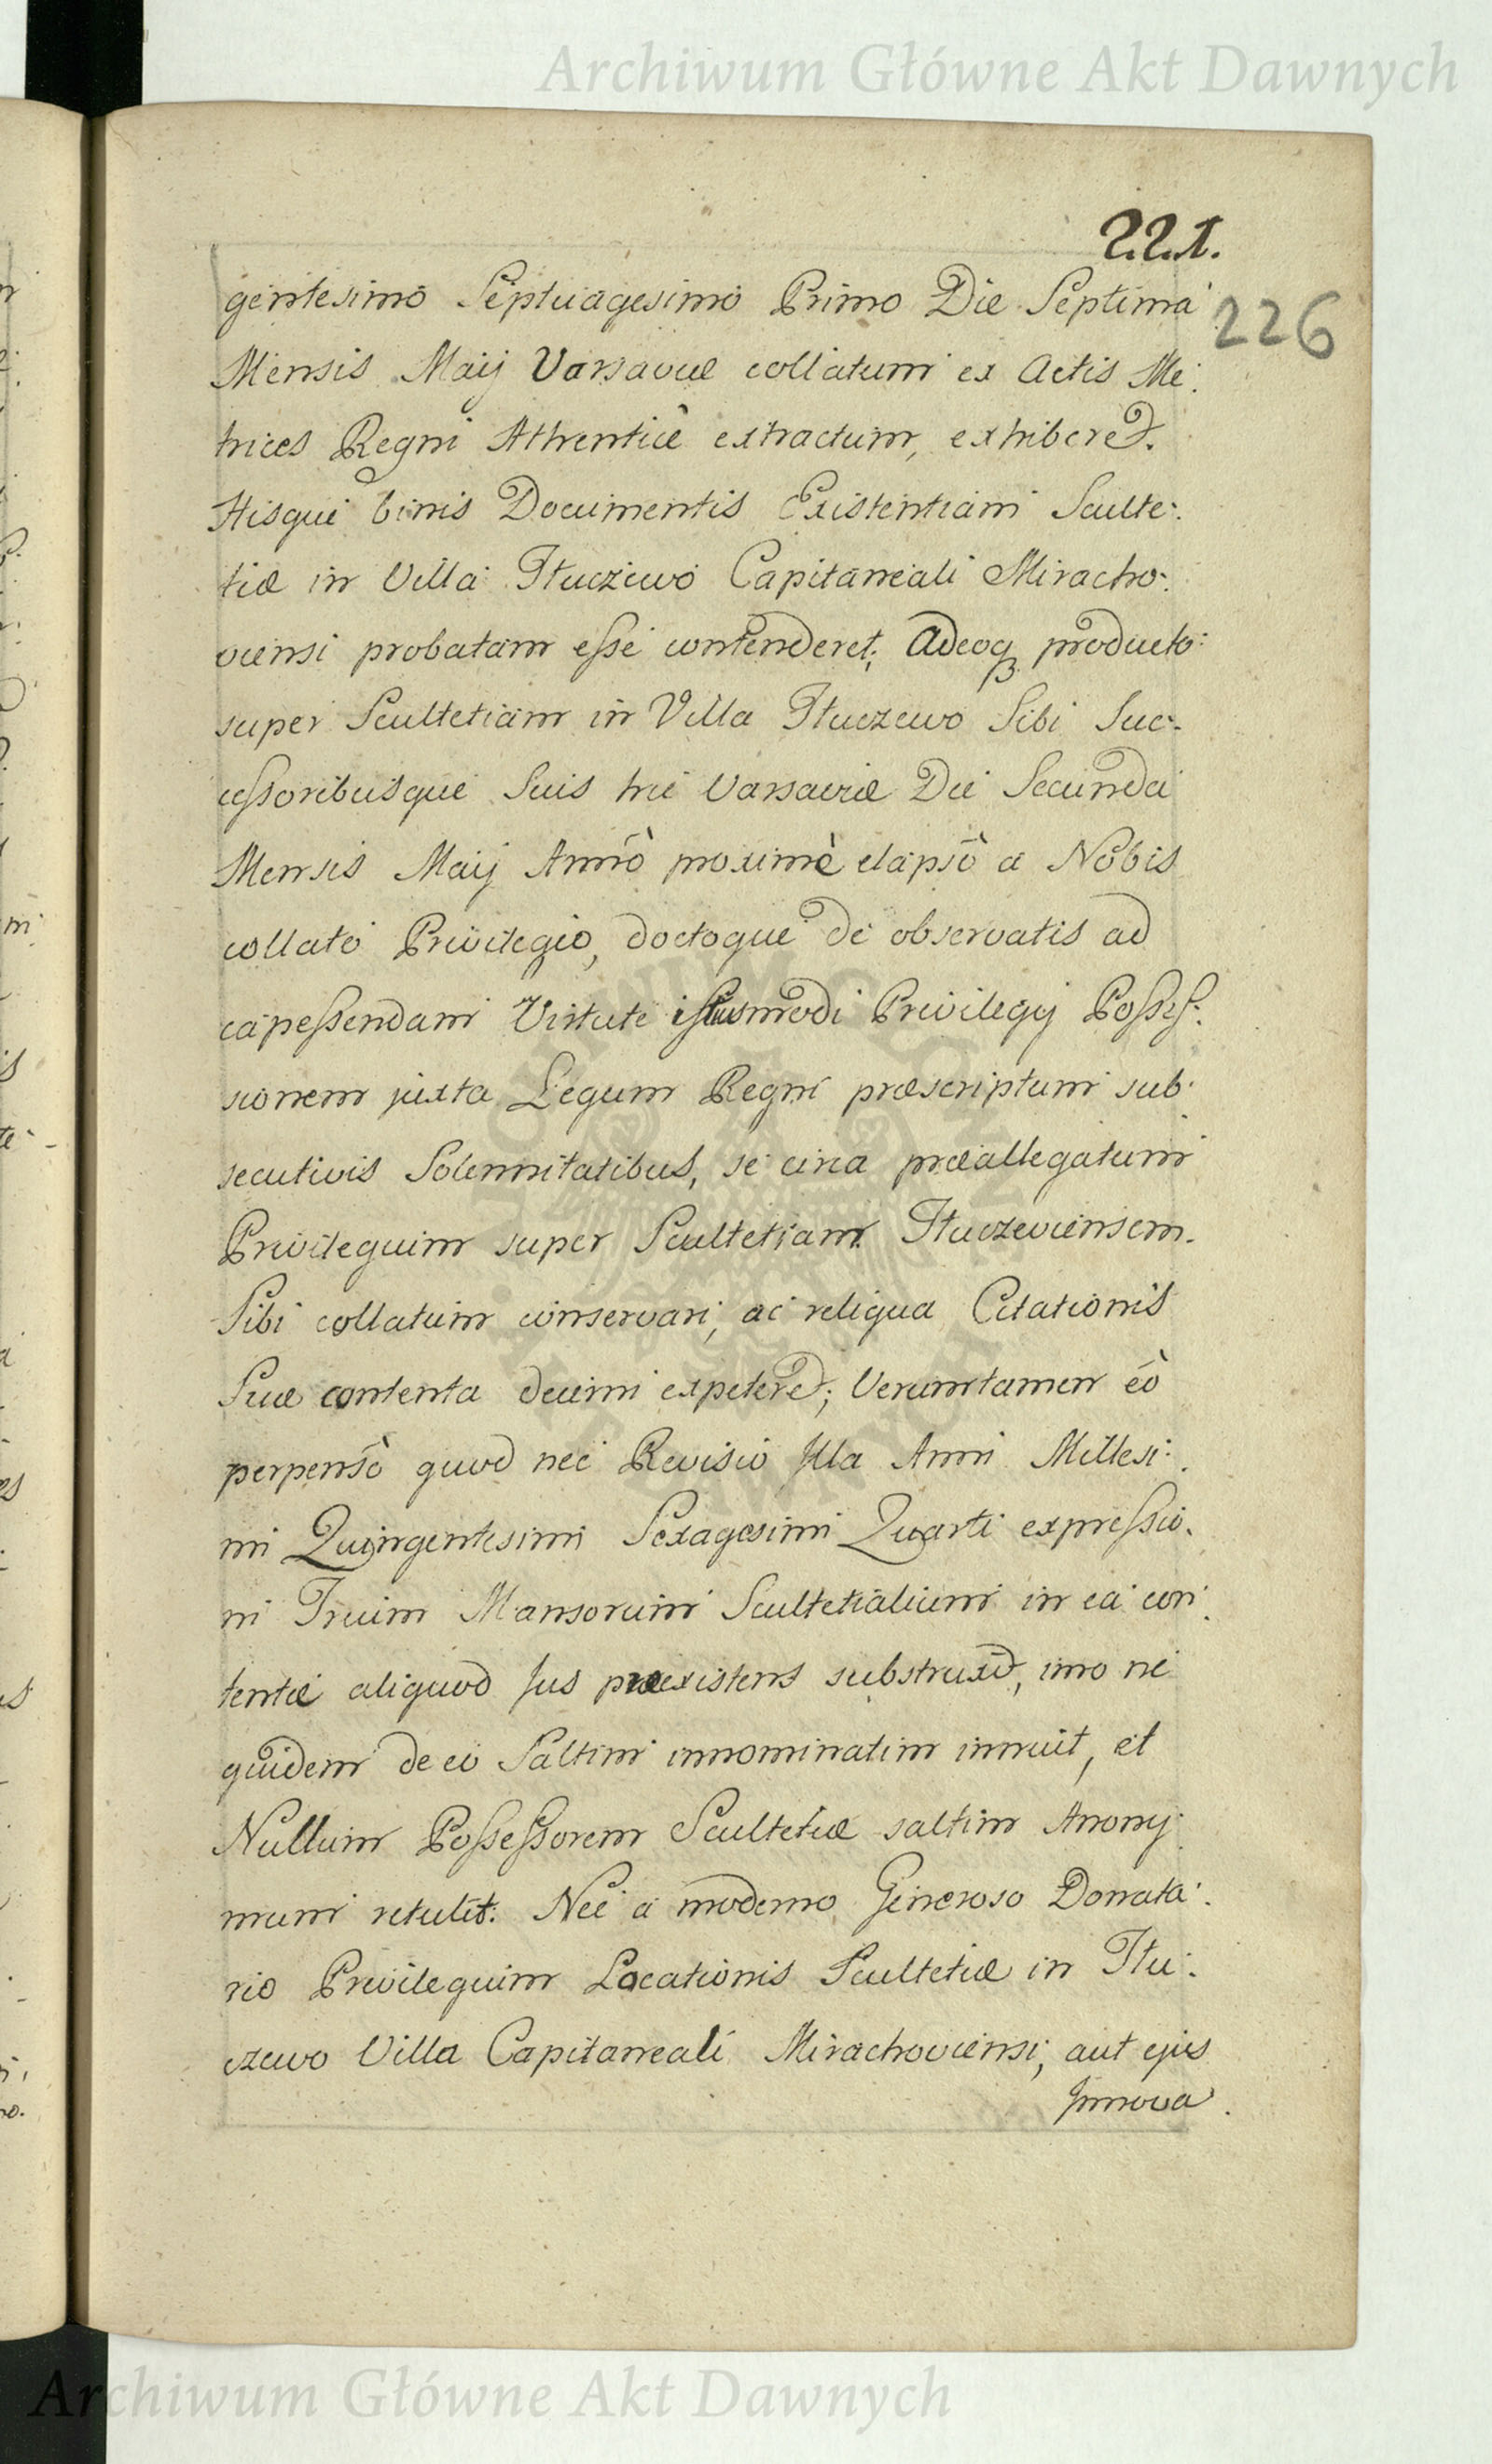 Archiwum Główne Akt Dawnych
221.
226
gentesimo Septuagesimo Primo Die Septima
Mensis Maij Varsaviæ collatum ex Actis Me:
trices Regni Athenticè extractum, exhiberet.
Hisque binis Documentis Existentiam Sculte:
tiæ in Villa Tłuczewo Capitaneali Miracho:
viensi probatam esse contenderet; Adeoq producto
super Scultetiam in Villa Tłuczewo Sibi Suc:
cessoribusque Suis hic Varsaviæ Die Secunda
Mensis Maij Annò proximè elapsò a Nobis
collato Privilegio, doctoque de observatis ad
capessendam Virtute istiusmodi Privilegij Posses:
sionem juxta Legum Regni præscriptum sub:
secutivis Solennitatibus, se circa præallegatum
Privilegium super Scultetiam Tłuczeviensem
Sibi collatum conservari, ac reliqua Citationis
Suæ contenta decerni expeteret; Verumtamen eò
perpensò quod nec Revisio Illa Anni Millesi:
mi Quingentesimi Sexagesimi Quarti expressio:
ni Trium Mansorum Scultetialium in ea con:
tentæ aliquod Jus præexistens substruxit, imo ne
quidem de eo Saltim innominatim innuit, et
Nullum Possessorem Scultetiæ saltim Anony:
mum retulit. Nec a moderno Generoso Donata:
rio Privilegium Locationis Scultetiæ in Tłu:
czewo Villa Capitaneali Mirachoviensi, aut ejus
Innova
Archiwum Główne Akt Dawnych